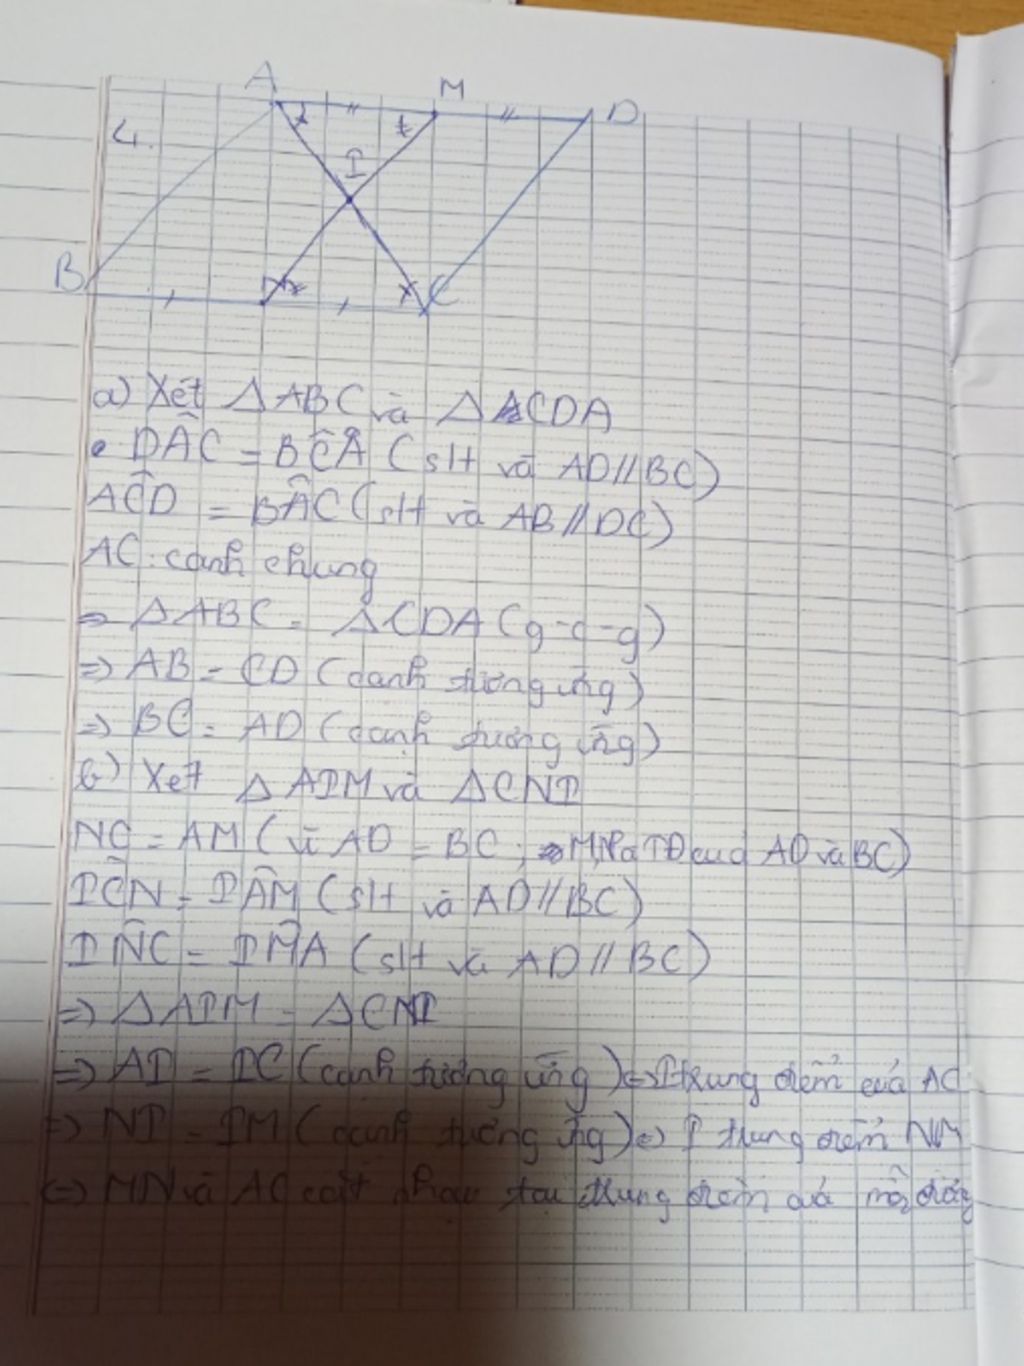 A M D
4.
I
B N C
a) Xét △ABC và △CDA
• DÂC = BĈA (slt và AD//BC)
AĈD = BÂC (slt và AB//DC)
AC: cạnh chung
⇒ △ABC = △CDA (g-c-g)
⇒ AB = CD (cạnh tương ứng)
⇒ BC = AD (cạnh tương ứng)
b) Xét △AIM và △CNI
NC = AM (vì AD = BC; M,N là TĐ của AD và BC)
IĈN = IÂM (slt và AD//BC)
IN̂C = IM̂A (slt và AD//BC)
⇒ △AIM = △CNI
⇒ AI = IC (cạnh tương ứng) ⇔ I trung điểm của AC
⇒ NI = IM (cạnh tương ứng) ⇔ I trung điểm NM
⇔ MN và AC cắt nhau tại trung điểm của mỗi đường